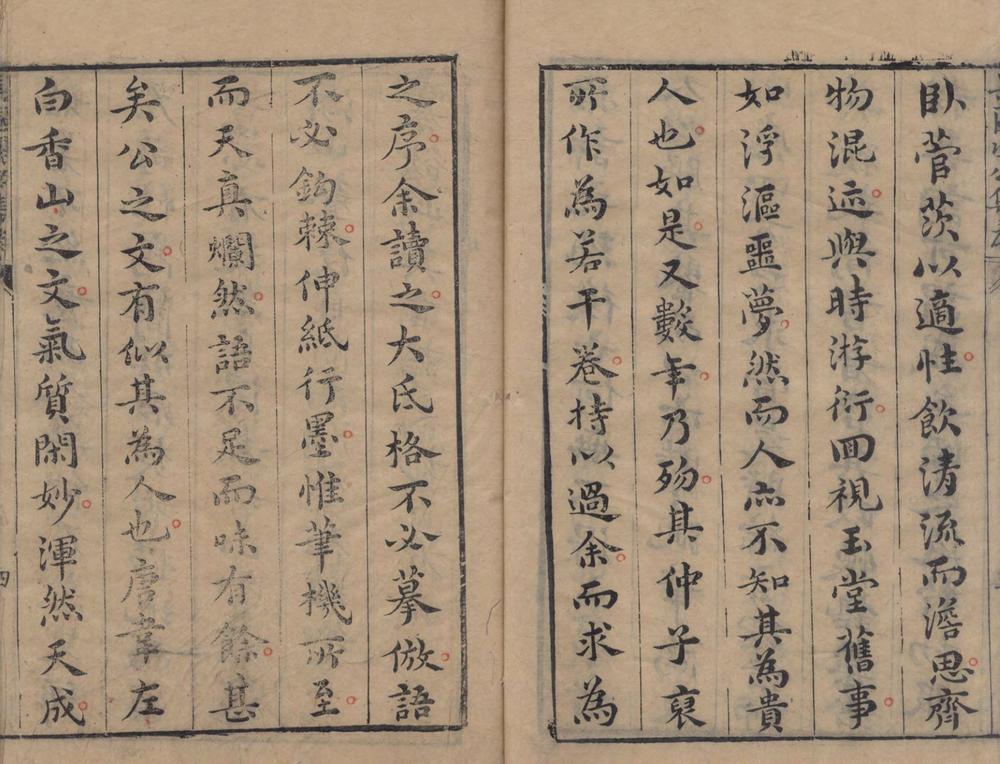 臥菅茨以適性飲清流而澹思齊
物混迹與時游衍回視玉堂舊事
如浮漚噩夢然而人亦不知其為貴
人也如是又數年乃歿其仲子裒
所作為若干卷持以過余而求為
之序余讀之大氐格不必摹倣語
不必鈎棘伸紙行墨惟筆機所至
而天真爛然語不足而味有餘甚
矣公之文有似其為人也唐韋左
白香山之文氣質閑妙渾然天成